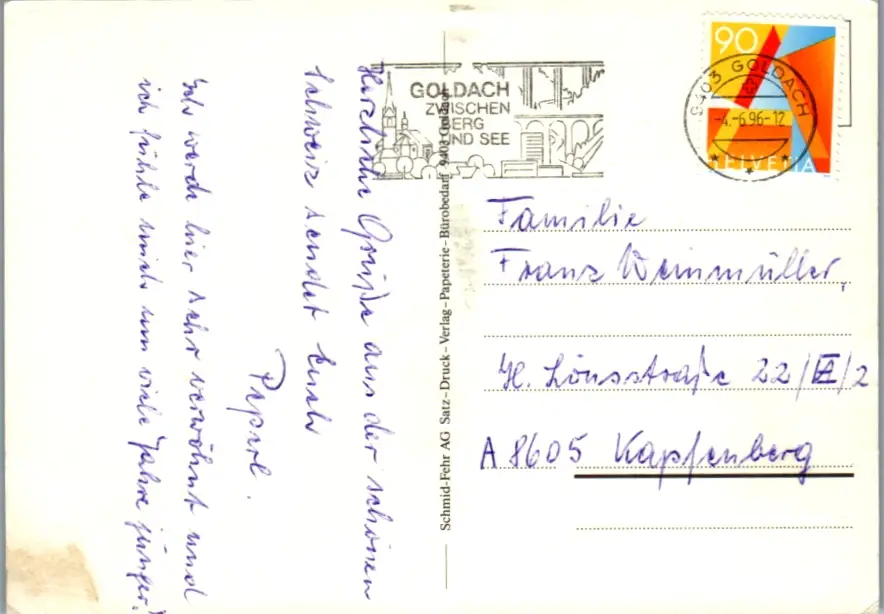 Herzliche Grüße aus der schönen
Schweiz sendet Euch
Peperl.
Ich werde hier sehr verwöhnt und
ich fühle mich um viele Jahre jünger!
Schmid-Fehr AG Satz – Druck – Verlag – Papeterie – Bürobedarf 9403 Goldach
GOLDACH
ZWISCHEN
BERG
UND SEE
90
HELVETIA
9403 GOLDACH
-4.-6.96-12
Familie
Franz Weinmüller,
H. Lönsstraße 22/VI/2
A 8605 Kapfenberg